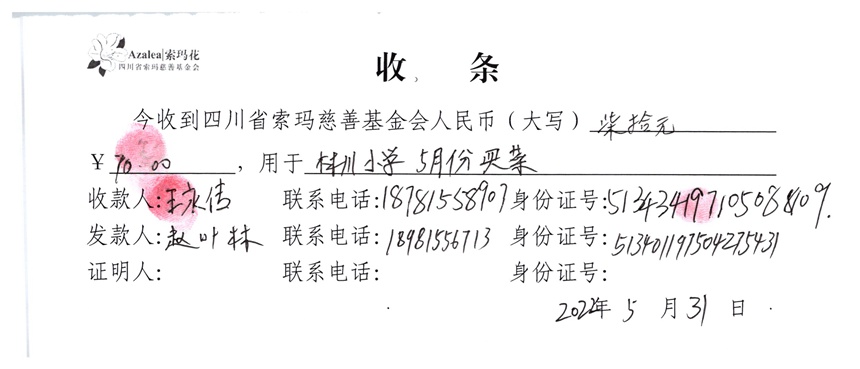 Azalea|索玛花
四川省索玛慈善基金会
收 条
今收到四川省索玛慈善基金会人民币（大写）柒拾元
￥70.00，用于 小学5月份买菜
收款人:王永伟 联系电话:18781558907 身份证号:
发款人:赵叶林 联系电话:18981556713 身份证号:513401197504275431
证明人: 联系电话: 身份证号:
2022年 5 月 31 日